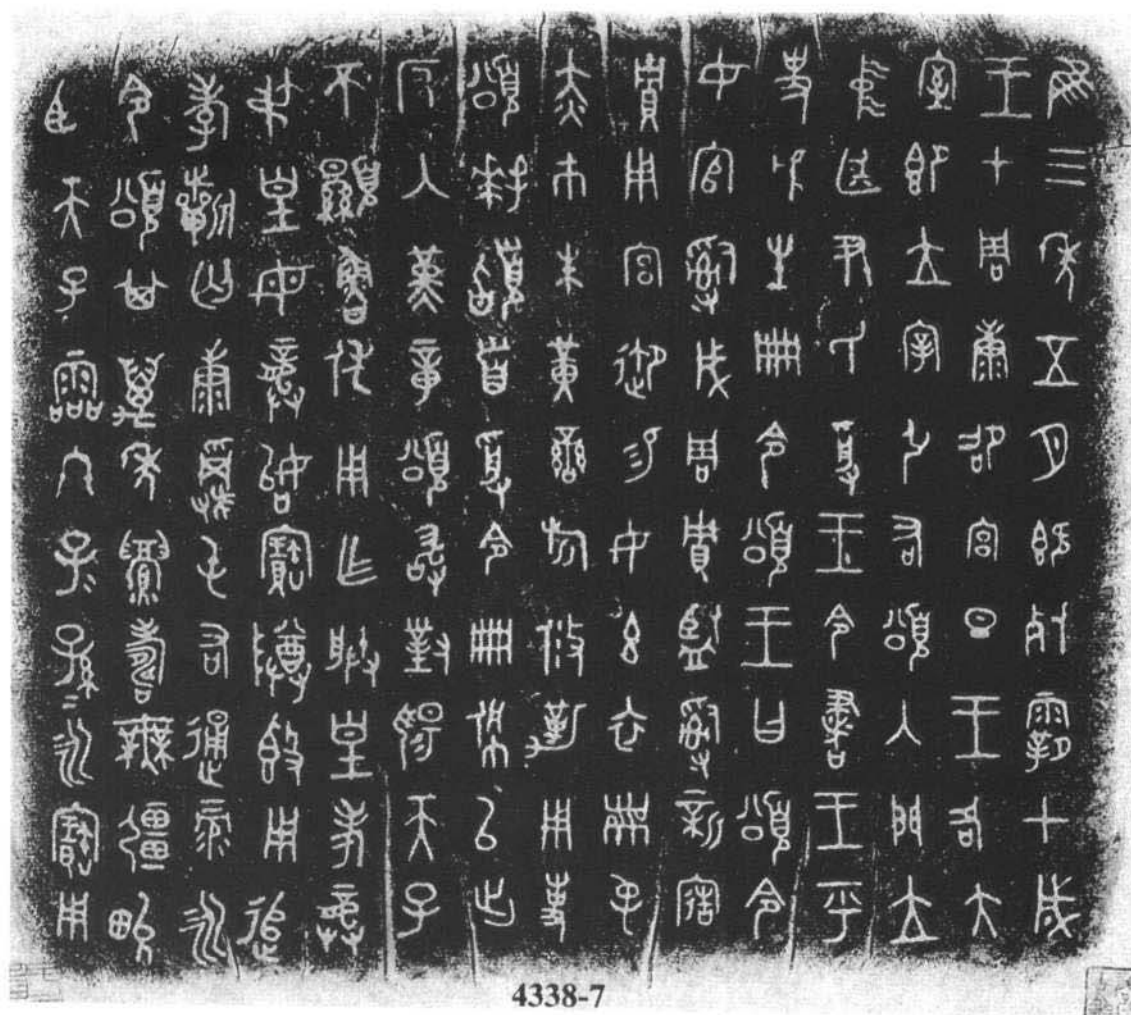 隹三年五月既死霸甲戌
王才周康卲宮旦王各大
室即立宰弘右頌入門立
中廷尹氏受王令書王乎
史虢生冊令頌王曰頌令
女官𤔲成周賈監𤔲新造
賈用宮御易女玄衣黹屯
赤巿朱黃䜌旂攸勒用事
頌拜𩒨首受令冊佩㠯出
反入堇章頌敢對揚天子
不顯魯休用乍朕皇考龏
弔皇母龏姒寶尊𣪘用追
孝祈匄康𩁹屯右通彔永
令頌其萬年眉壽無疆畯
臣天子霝冬子=孫=永寶用
4338-7